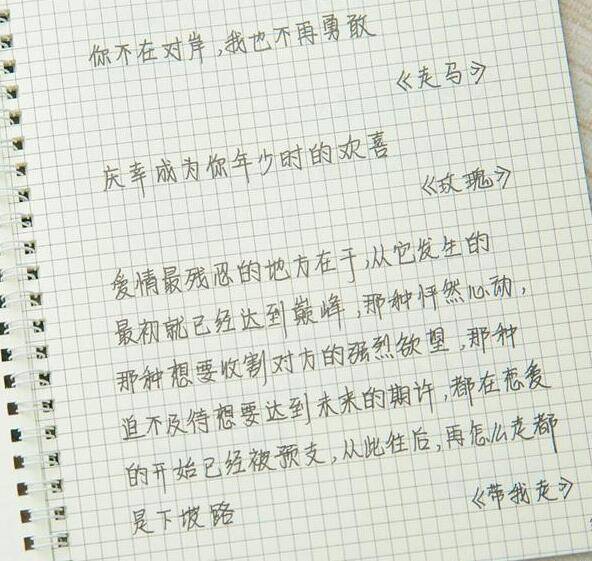 你不在对岸，我也不再勇敢
《走马》
庆幸成为你年少时的欢喜
《玫瑰》
爱情最残忍的地方在于，从它发生的
最初就已经达到巅峰，那种怦然心动，
那种想要收割对方的强烈欲望，那种
迫不及待想要达到未来的期许，都在恋爱
的开始已经被预支，从此往后，再怎么走都
是下坡路
《带我走》